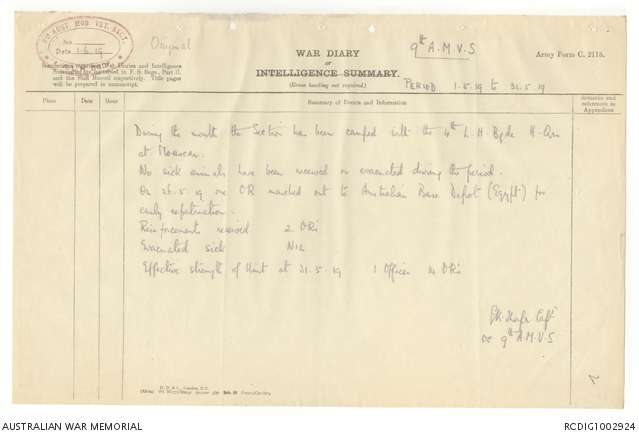 9TH AUST. MOB. VET. SECT.
No.
Date 1.6.19
Original
WAR DIARY
or
INTELLIGENCE SUMMARY.
(Erase heading not required.)
9th A.M.V.S
PERIOD 1.5.19 to 31.5.19
Army Form C. 2118.
Instructions regarding War Diaries and Intelligence
Summaries are contained in F. S. Regs., Part II.
and the Staff Manual respectively. Title pages
will be prepared in manuscript.
Place Date Hour Summary of Events and Information Remarks and references to Appendices
During the month the Section has been camped with the 4th L.H. Bgde H.Qrs
at Moascar.
No sick animals have been received or evacuated during the period.
On 26.5.19 one OR marched out to Australian Base Depot (Egypt) for
early repatriation.
Reinforcements received 2 ORs
Evacuated sick Nil
Effective strength of Unit at 31.5.19 1 Officer 14 ORs
Capt
OC 9th A.M.V.S
AUSTRALIAN WAR MEMORIAL
RCDIG1002924